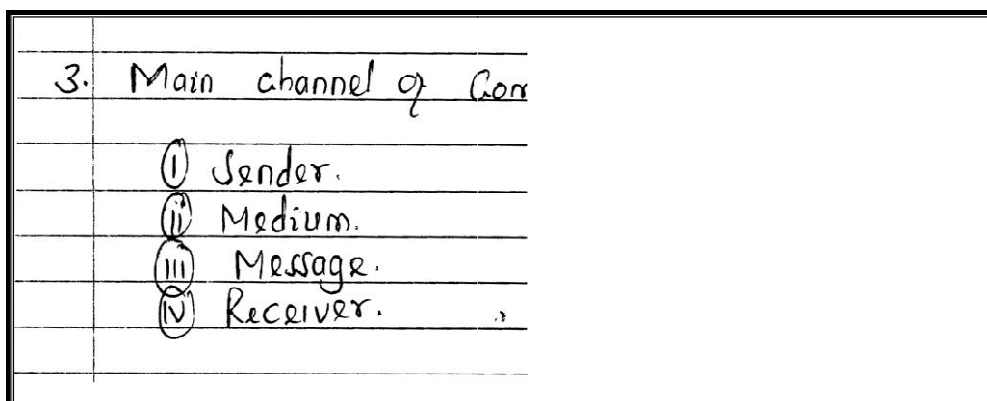 3. Main channel of Com
(i) Sender.
(ii) Medium.
(iii) Message.
(iv) Receiver.